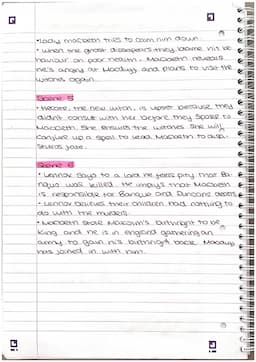 •Lady macbeth tries to calm him down.
• when the ghost dissapears they blame his be
haviour on poor health. Macbeth reveals
he's angry at Macduff and plans to visit the
witches again.
Scene 5
• Hecate, the new witch, is upset because they
didn't consult with her before they spoke to
Macbeth. She ensures the witches she will
conjure up a spell to lead Macbeth to a di
sturbs fate.
Scene 6
• Lennox says to a lord he feels pity that Ba-
nquo was killed. He implys that Macbeth
is responsible for Banquo and Duncans death
• Lennox believes their children had nothing to
do with the murders.
• Macbeth stole Malcolm's birthright to be
king and he is in england gathering an
army to gain his birthright back. Macduff
has joined in with him.